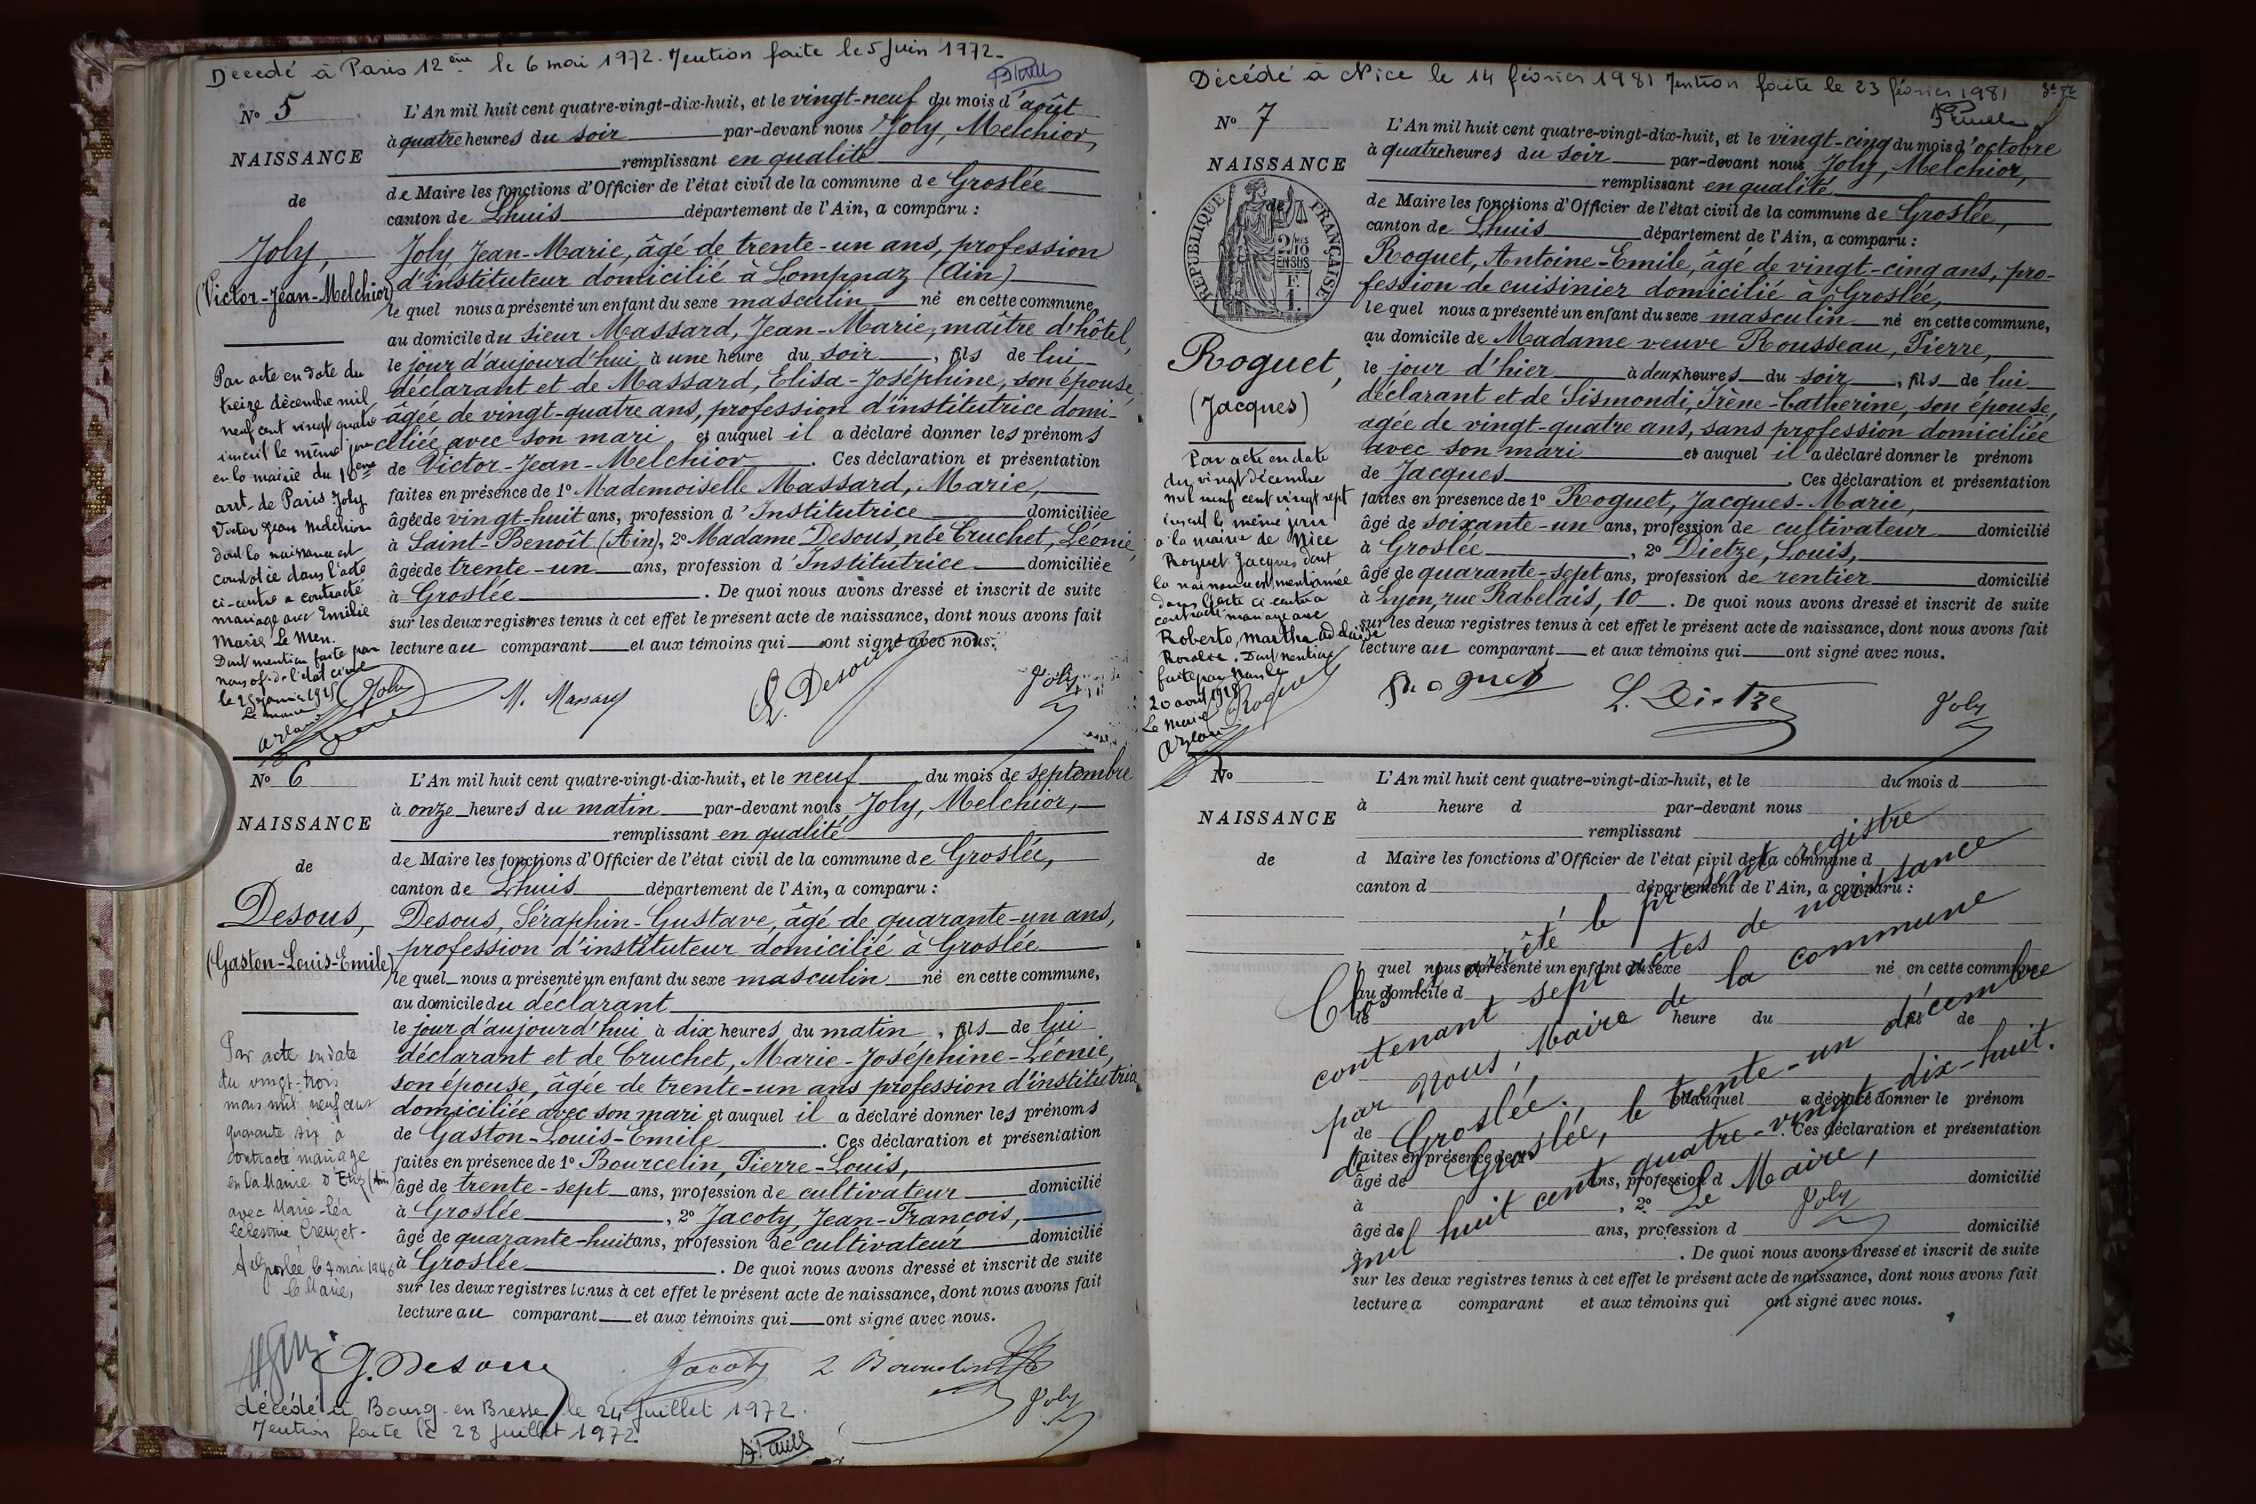 Décédé à Paris 12ème le 6 mai 1972. Mention faite le 5 Juin 1972.
N° 5
NAISSANCE
de
Joly,
(Victor-Jean-Melchior)
L'An mil huit cent quatre-vingt-dix-huit, et le vingt-neuf du mois d'août
à quatre heures du soir par-devant nous Joly, Melchior,
remplissant en qualité
de Maire les fonctions d'Officier de l'état civil de la commune de Groslée
canton de Lhuis département de l'Ain, a comparu :
Joly Jean-Marie, âgé de trente-un ans, profession
d'instituteur domicilié à Lompnaz (Ain)
le quel nous a présenté un enfant du sexe masculin né en cette commune,
au domicile du sieur Massard, Jean-Marie, maître d'hôtel,
le jour d'aujourd'hui à une heure du soir, fils de lui
déclarant et de Massard, Elisa-Joséphine, son épouse,
âgée de vingt-quatre ans, profession d'institutrice domi-
ciliée avec son mari et auquel il a déclaré donner les prénoms
de Victor-Jean-Melchior. Ces déclaration et présentation
faites en présence de 1° Mademoiselle Massard, Marie,
âgée de vingt-huit ans, profession d'Institutrice domiciliée
à Saint-Benoît (Ain), 2° Madame Desous, née Cruchet, Léonie,
âgée de trente-un ans, profession d'Institutrice domiciliée
à Groslée. De quoi nous avons dressé et inscrit de suite
sur les deux registres tenus à cet effet le présent acte de naissance, dont nous avons fait
lecture au comparant et aux témoins qui ont signé avec nous.
Par acte en date du
treize décembre mil
neuf cent vingt quatre
inscrit le même jour
en la mairie du 18ème
arrt de Paris Joly
Victor Jean Melchior
dont la naissance est
constatée dans l'acte
ci-contre a contracté
mariage avec Emilie
Marie Le Men.
Dont mention faite par
nous of. de l'état civil
le 25 janvier 1925
Le maire
Joly
M. Massard
L. Desous
Joly
N° 6
NAISSANCE
de
Desous,
(Gaston-Louis-Emile)
L'An mil huit cent quatre-vingt-dix-huit, et le neuf du mois de septembre
à onze heures du matin par-devant nous Joly, Melchior,
remplissant en qualité
de Maire les fonctions d'Officier de l'état civil de la commune de Groslée,
canton de Lhuis département de l'Ain, a comparu :
Desous, Séraphin-Gustave, âgé de quarante-un ans,
profession d'instituteur domicilié à Groslée
le quel nous a présenté un enfant du sexe masculin né en cette commune,
au domicile du déclarant
le jour d'aujourd'hui à dix heures du matin, fils de lui
déclarant et de Cruchet, Marie-Joséphine-Léonie,
son épouse, âgée de trente-un ans profession d'institutrice
domiciliée avec son mari et auquel il a déclaré donner les prénoms
de Gaston-Louis-Emile. Ces déclaration et présentation
faites en présence de 1° Bourcelin, Pierre-Louis,
âgé de trente-sept ans, profession de cultivateur domicilié
à Groslée, 2° Jacoty, Jean-François,
âgé de quarante-huit ans, profession de cultivateur domicilié
à Groslée. De quoi nous avons dressé et inscrit de suite
sur les deux registres tenus à cet effet le présent acte de naissance, dont nous avons fait
lecture au comparant et aux témoins qui ont signé avec nous.
Par acte en date
du vingt-trois
mars mil neuf cent
quarante six a
contracté mariage
en la Mairie d'Etrez (Ain)
avec Marie-Léa
Célestine Creuzet-
A Groslée le 7 mai 1946
le Maire,
G. Desous
Jacoty
L Bourcelin
Joly
décédé à Bourg-en-Bresse le 24 Juillet 1972.
Mention faite le 28 Juillet 1972
Décédé à Nice le 14 février 1981 Mention faite le 23 février 1981
N° 7
NAISSANCE
de
RÉPUBLIQUE FRANÇAISE
2/10 EN SUS
Roguet,
(Jacques)
L'An mil huit cent quatre-vingt-dix-huit, et le vingt-cinq du mois d'octobre
à quatre heures du soir par-devant nous Joly, Melchior,
remplissant en qualité
de Maire les fonctions d'Officier de l'état civil de la commune de Groslée,
canton de Lhuis département de l'Ain, a comparu :
Roguet, Antoine-Emile, âgé de vingt-cinq ans, pro-
fession de cuisinier domicilié à Groslée,
le quel nous a présenté un enfant du sexe masculin né en cette commune,
au domicile de Madame veuve Rousseau, Pierre,
le jour d'hier à deux heures du soir, fils de lui
déclarant et de Sismondi, Irène-Catherine, son épouse,
âgée de vingt-quatre ans, sans profession domiciliée
avec son mari et auquel il a déclaré donner le prénom
de Jacques. Ces déclaration et présentation
faites en présence de 1° Roguet, Jacques-Marie,
âgé de soixante-un ans, profession de cultivateur domicilié
à Groslée, 2° Dietze, Louis,
âgé de quarante-sept ans, profession de rentier domicilié
à Lyon, rue Rabelais, 10. De quoi nous avons dressé et inscrit de suite
sur les deux registres tenus à cet effet le présent acte de naissance, dont nous avons fait
lecture au comparant et aux témoins qui ont signé avec nous.
Par acte en date
du vingt décembre
mil neuf cent vingt sept
inscrit le même jour
à la mairie de Nice
Roguet Jacques dont
la naissance est mentionnée
dans l'acte ci-contre a
contracté mariage avec
Roberto, Martha
Dont mention
faite par nous le
20 août 1928
Le Maire
Roguet
Roguet
L. Dietze
Joly
N°
NAISSANCE
de
L'An mil huit cent quatre-vingt-dix-huit, et le du mois d
à heure d par-devant nous
remplissant
d Maire les fonctions d'Officier de l'état civil de la commune d
canton d département de l'Ain, a comparu :
l quel nous a présenté un enfant du sexe né en cette commune,
au domicile d
le heure du fil de
et auquel a déclaré donner le prénom
de . Ces déclaration et présentation
faites en présence de 1°
âgé de ans, profession d domicilié
à , 2°
âgé de ans, profession d domicilié
à . De quoi nous avons dressé et inscrit de suite
sur les deux registres tenus à cet effet le présent acte de naissance, dont nous avons fait
lecture a comparant et aux témoins qui ont signé avec nous.
Clos et arrêté le présent registre
contenant sept actes de naissance
par Nous, Maire de la commune
de Groslée.
Groslée, le trente-un décembre
mil huit cent quatre-vingt-dix-huit.
Le Maire,
Joly